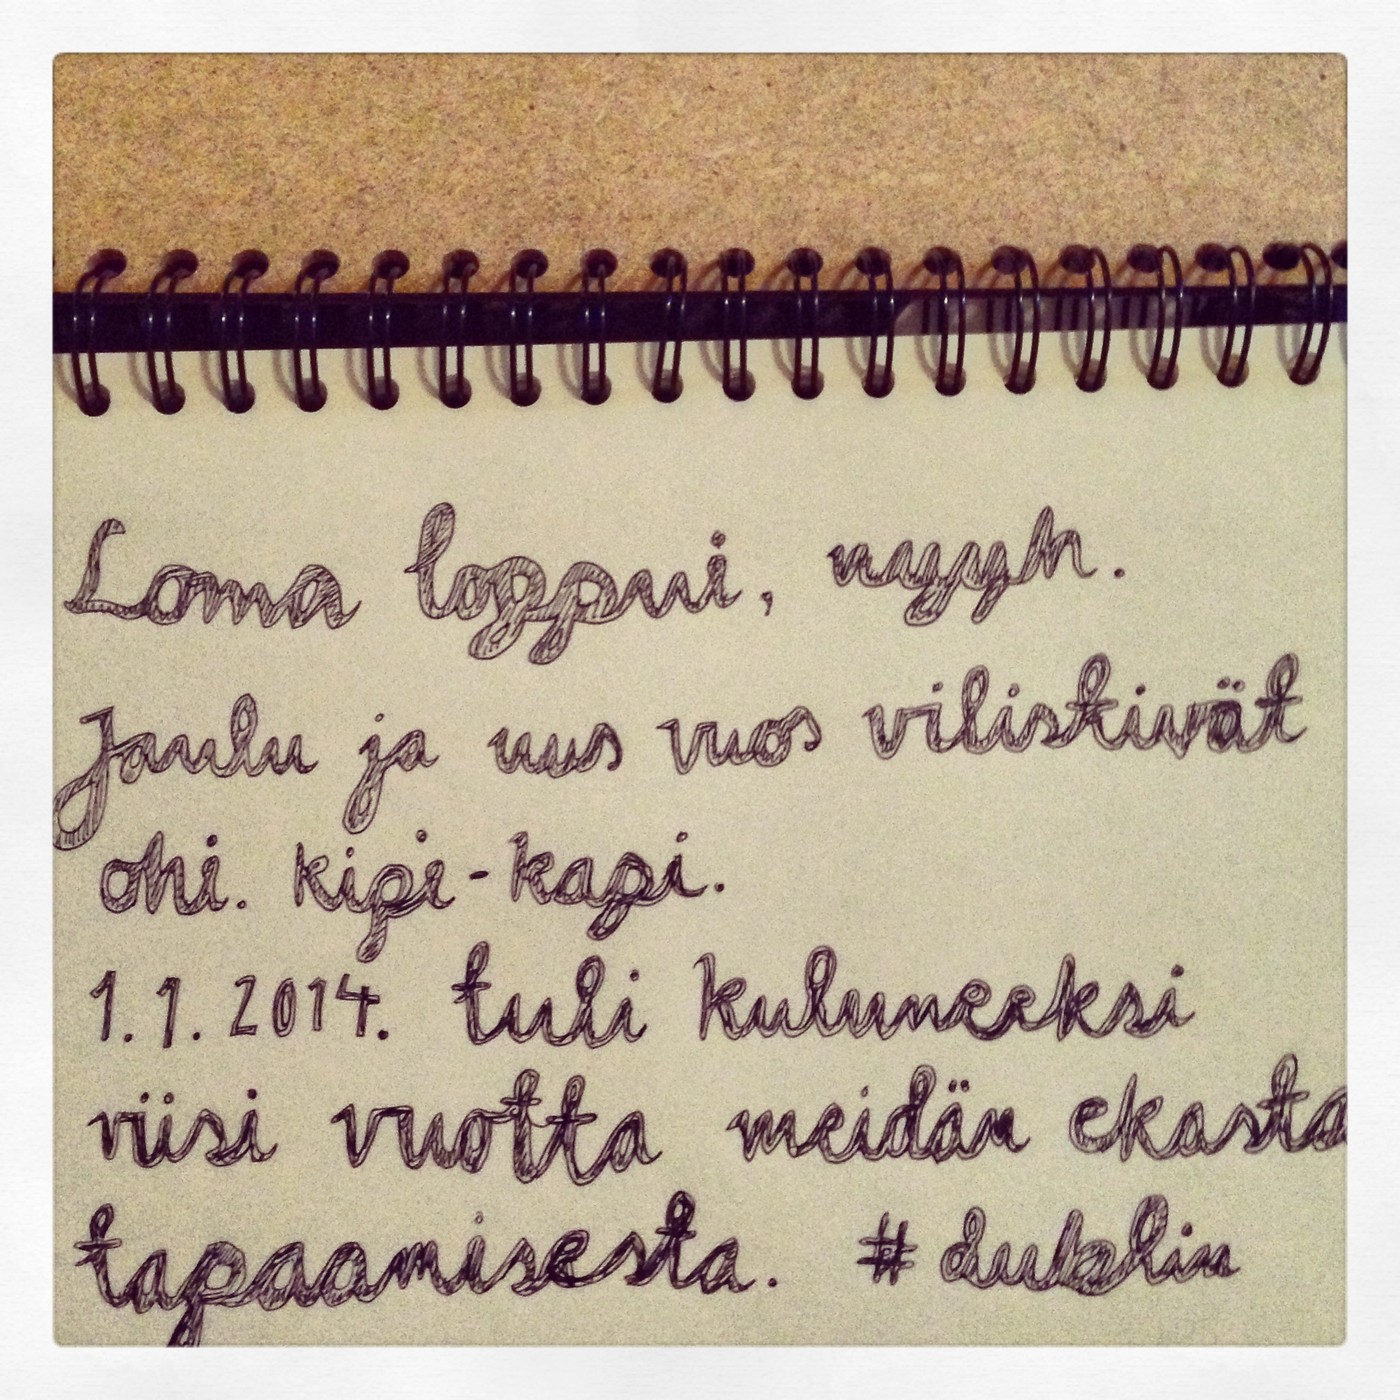 Loma loppui, nyyh.
Joulu ja uus vuos vilistivät
ohi. kipi-kapi.
1.1.2014. tuli kuluneeksi
viisi vuotta meidän ekasta
tapaamisesta. #dublin